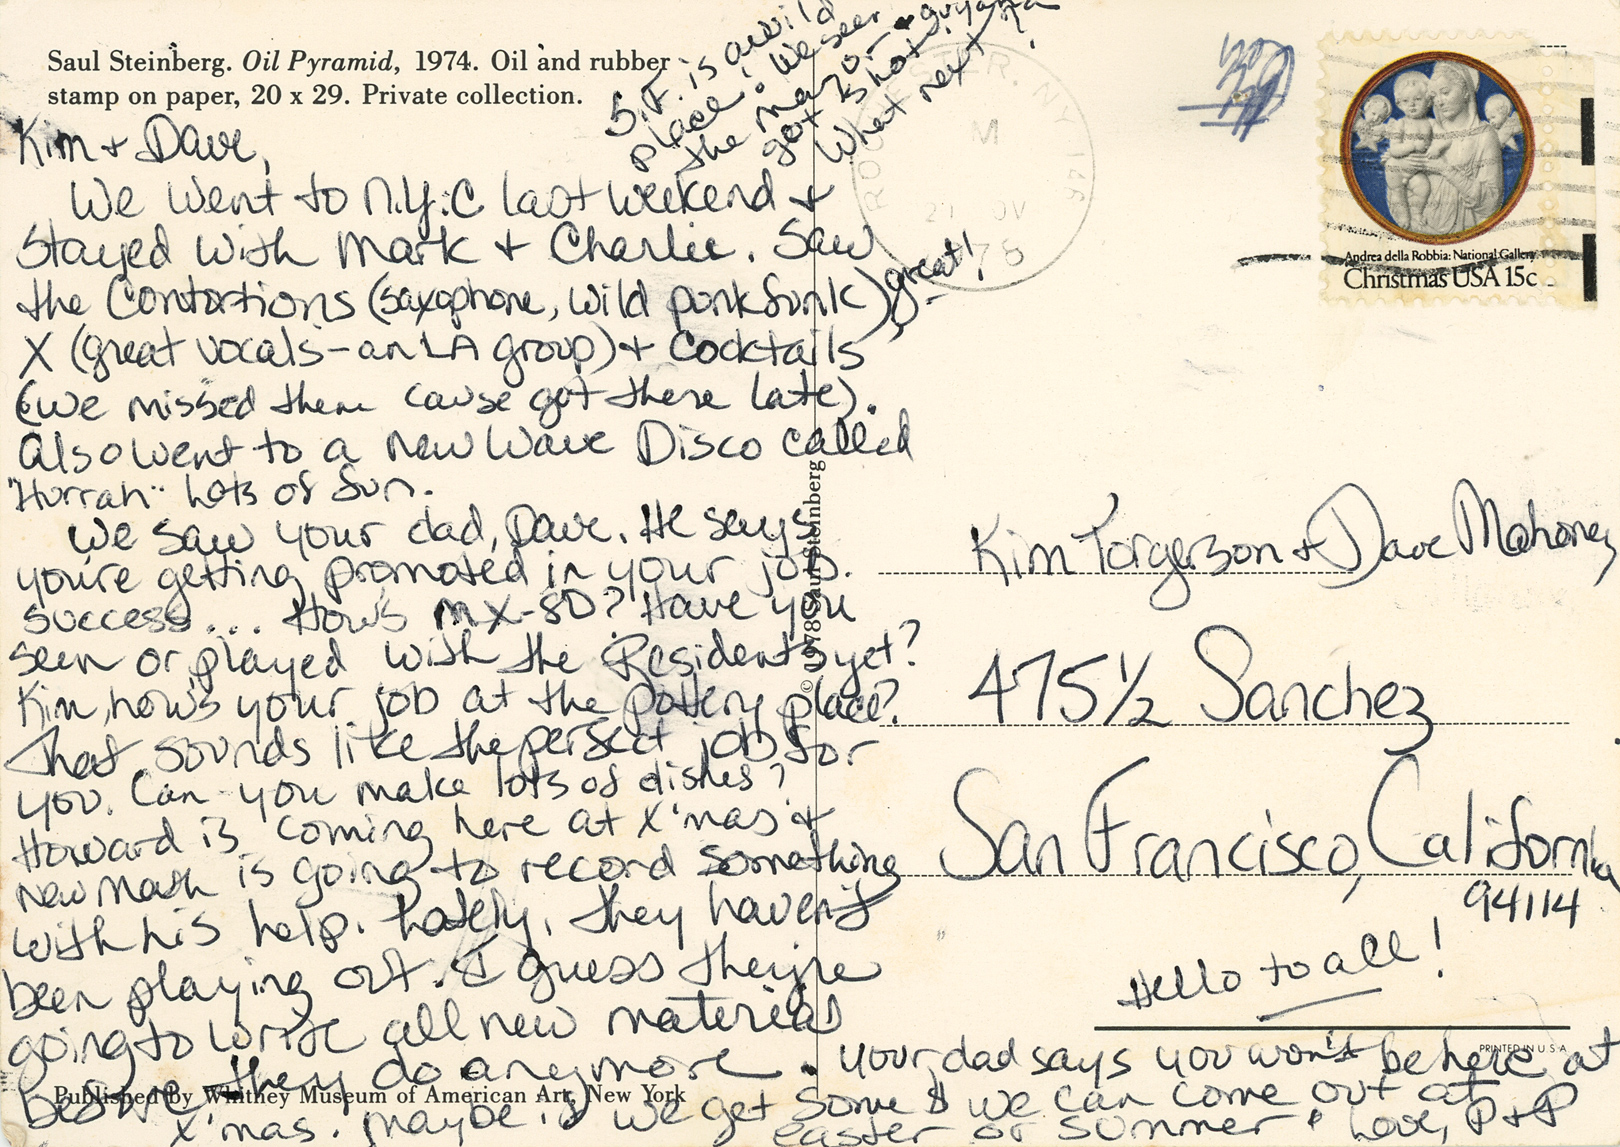 Saul Steinberg. Oil Pyramid, 1974. Oil and rubber
stamp on paper, 20 x 29. Private collection.
S.F. is a wild
place! We seen
the mayor
got shot. & guyana
What next?
ROCHESTER, NY 146
M
27 NOV
1978
Andrea della Robbia: National Gallery
Christmas USA 15c
Kim + Dave,
We went to N.Y.C last weekend +
stayed with Mark + Charlie. Saw
the Contortions (saxophone, wild punk funk) great!,
X (great vocals - an LA group) + Cocktails
(we missed them cause got there late).
Also went to a New Wave Disco called
"Hurrah" Lots of fun.
We saw your dad, Dave. He says
you're getting promoted in your job.
success... How's MX-80? Have you
seen or played with the Residents yet?
Kim, how's your job at the pottery place?
That sounds like the perfect job for
you. Can you make lots of dishes?
Howard is coming here at X'mas +
New Math is going to record something
with his help. Lately, they haven't
been playing out. I guess they're
going to write all new material
before they do anymore. Your dad says you won't be here at
X'mas. Maybe if we get some $ we can come out at
easter or summer. Love, P + P
© 1978 Saul Steinberg
Published by Whitney Museum of American Art, New York
Kim Torgerson + Dave Mahoney
475 1/2 Sanchez
San Francisco, California
94114
Hello to all!
PRINTED IN U.S.A.